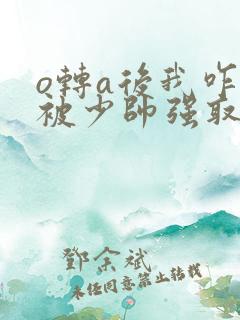 o轉a後我咋
被少帥强取
鄧余斌
未任同意禁止转载